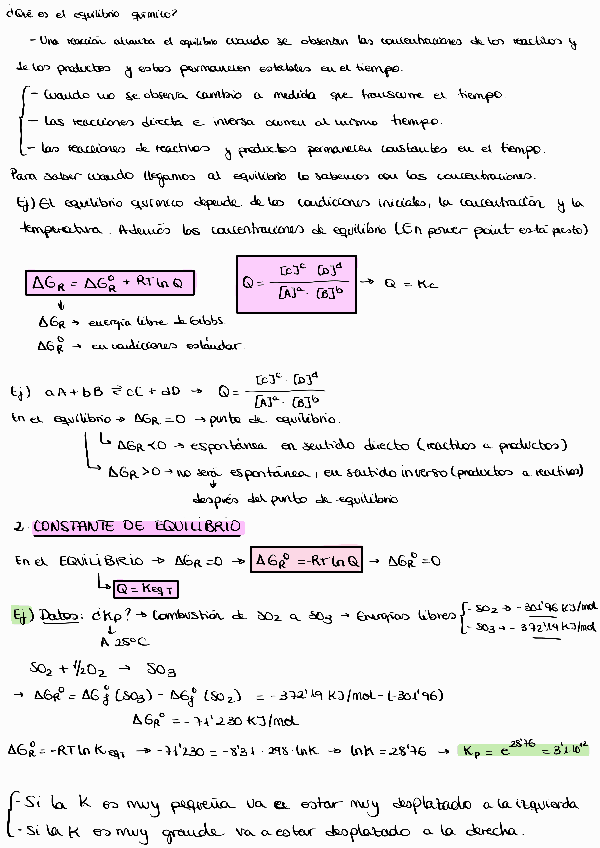 ¿Qué es el equilibrio químico?
- Una reacción alcanza el equilibrio cuando se observan las concentraciones de los reactivos y
de los productos y estos permanecen estables en el tiempo.
- Cuando no se observa cambio a medida que transcurre el tiempo
- Las reacciones directa e inversa ocurren al mismo tiempo.
- Las reacciones de reactivos y productos permanecen constantes en el tiempo.
Para saber cuando llegamos al equilibrio lo sabemos con las concentraciones.
Ej) El equilibrio químico depende de las condiciones iniciales, la concentración y la
temperatura. Además las concentraciones de equilibrio (En power point está puesto)
ΔG_R = ΔG_R^0 + RT ln Q
Q = [C]^c · [D]^d / [A]^a · [B]^b → Q = Kc
ΔG_R → energía libre de Gibbs.
ΔG_R^0 → en condiciones estándar.
Ej) aA + bB ⇌ cC + dD → Q = [C]^c · [D]^d / [A]^a · [B]^b
En el equilibrio → ΔG_R = 0 → punto de equilibrio.
ΔG_R < 0 → espontánea en sentido directo (reactivos a productos)
ΔG_R > 0 → no será espontánea, en sentido inverso (productos a reactivos)
después del punto de equilibrio
2. CONSTANTE DE EQUILIBRIO
En el EQUILIBRIO → ΔG_R = 0 → ΔG_R^0 = -RT ln Q → ΔG_R^0 = 0
Q = K_eq T
Ej) Datos: ¿Kp? → Combustión de SO2 a SO3 → Energías libres
- SO2 → -301'96 KJ/mol
- SO3 → -372'19 KJ/mol
A 25ºC
SO2 + 1/2 O2 → SO3
→ ΔG_R^0 = ΔG_f^0 (SO3) - ΔG_f^0 (SO2) = -372'19 KJ/mol - (-301'96)
ΔG_R^0 = -71'230 KJ/mol
ΔG_R^0 = -RT ln K_eq T → -71'230 = -8'31 · 298 · lnK → lnK = 28'76 → Kp = e^28'76 = 3'1·10^12
- Si la K es muy pequeña va a estar muy desplazado a la izquierda
- Si la K es muy grande va a estar desplazado a la derecha.